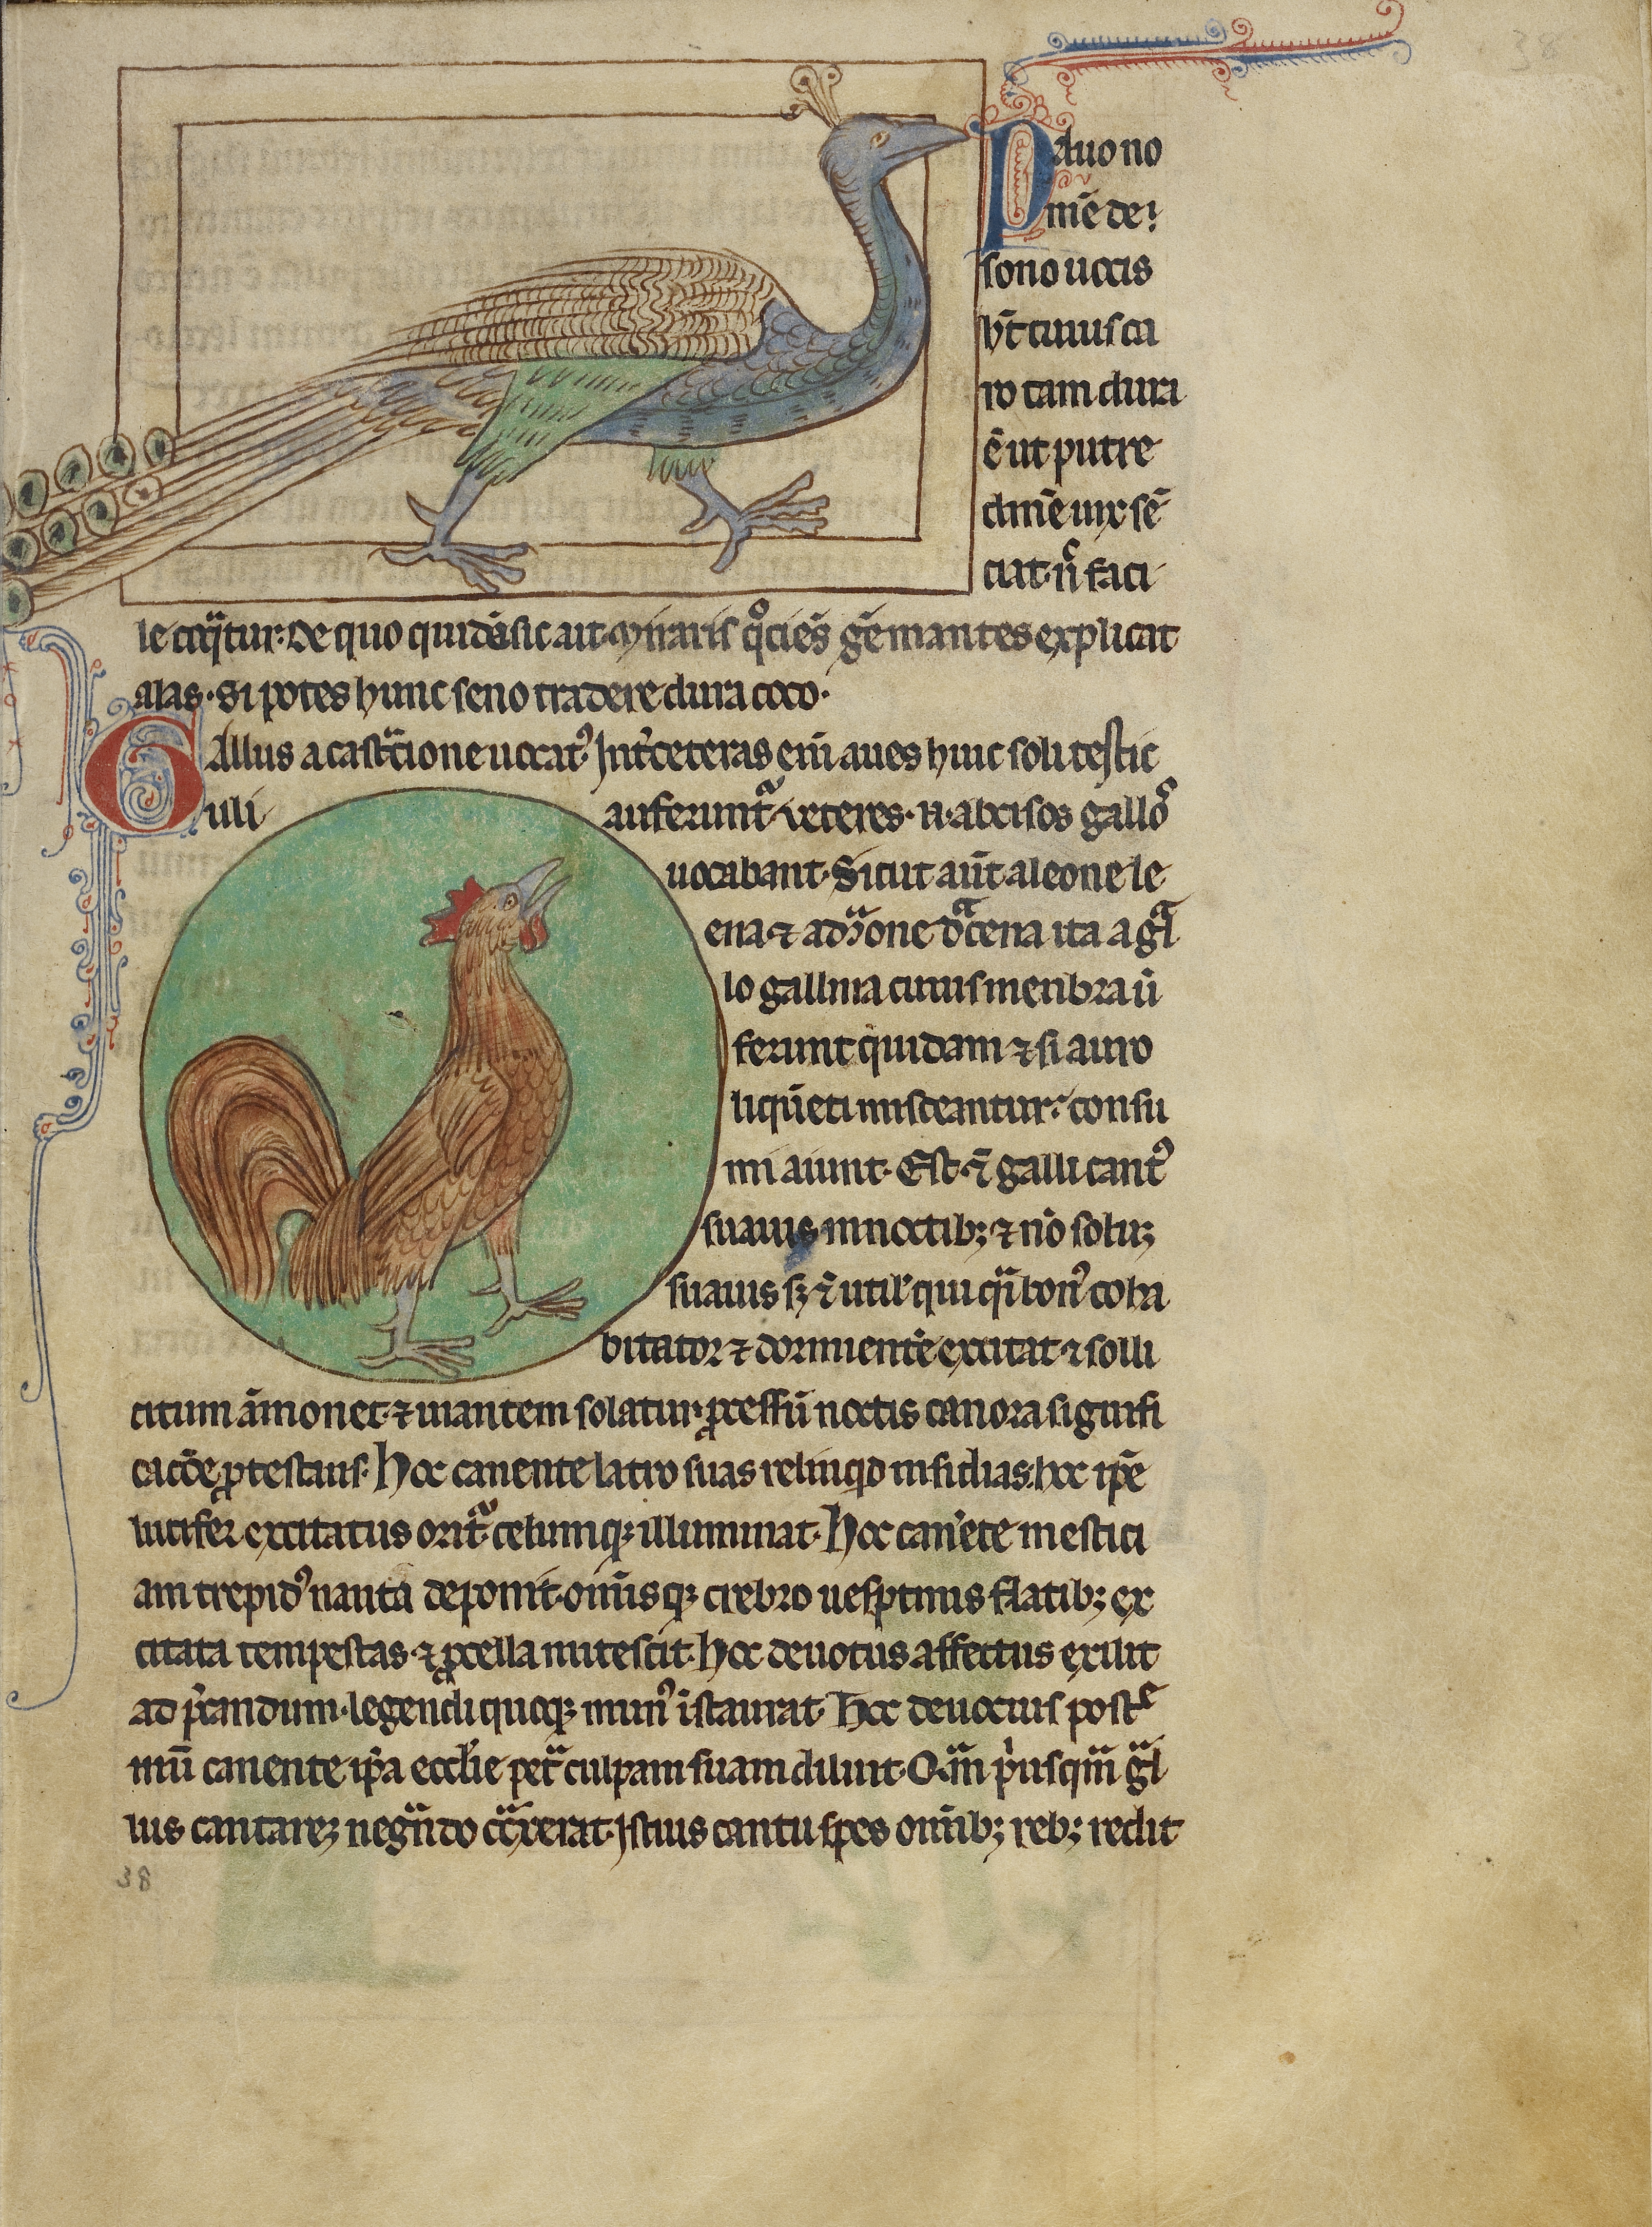 38
Pauo no
mē de
sono uocis
ht̄ cuius ca
ro tam dura
ē ut putre
dinē uix sē
ciat· n̄ faci
le coq̄tur· De quo quidā sic ait· Miraris q°ciēs gēmantes explicat
alas· Si potes hunc seuo tradere dura coco·
GAllus a castᵃcione uocat᾽ Int᾽ceteras eni᷑ aues huic soli testic
uli auferunt᷑ veteres· n· abcisos gallo᷑s
uocabant· Sicut aūt a leone le
ena ⁊ a dᵃcone dᵃcena ita a gᵃl
lo gallina cuius menbra ū
ferunt quidam ⁊ si auro
liquēti misceantur· consu
mi aiunt· Est· ⁊ galli cant᾽
suauis in noctibꝫ ⁊ nō soluꝫ
suauis sꝫ ⁊ util᾽ qui qᵃi bon᾽ coha
bitator ⁊ dormientē excitat ⁊ solli
citum āmonet· ⁊ uiantem solatur· ꝓcessū noctis canora signifi
cacōe ꝓtestans· Hoc canente latro suas relinqͥd insidias· hoc ip̄e
lucifer excitatus orit᷑ celumqꝫ illuminat· Hoc canēte mestici
am trepid᾽ nauta deponit· om̄isqꝫ crebro uesp̱tinis flatibꝫ ex
citata tempestas· ⁊ ꝓcella mitescit· hoc deuotus affectus exilit
ad p̄candum· legendi quoqꝫ mun᾽ īstaurat· Hoc deuocius postᵉ
mū canente ip̄a eccl̄ie petᵃ culpam suam diluit· Qᵃm pͥusqᵃm gᵃl
lus cantareꝫ negᵃndo cōtᵃxerat· Istius cantu spes om̄ibꝫ rebꝫ redit
38